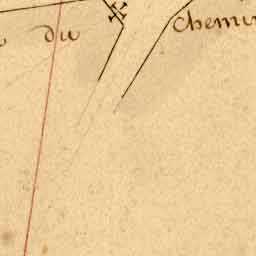 du
Chemin